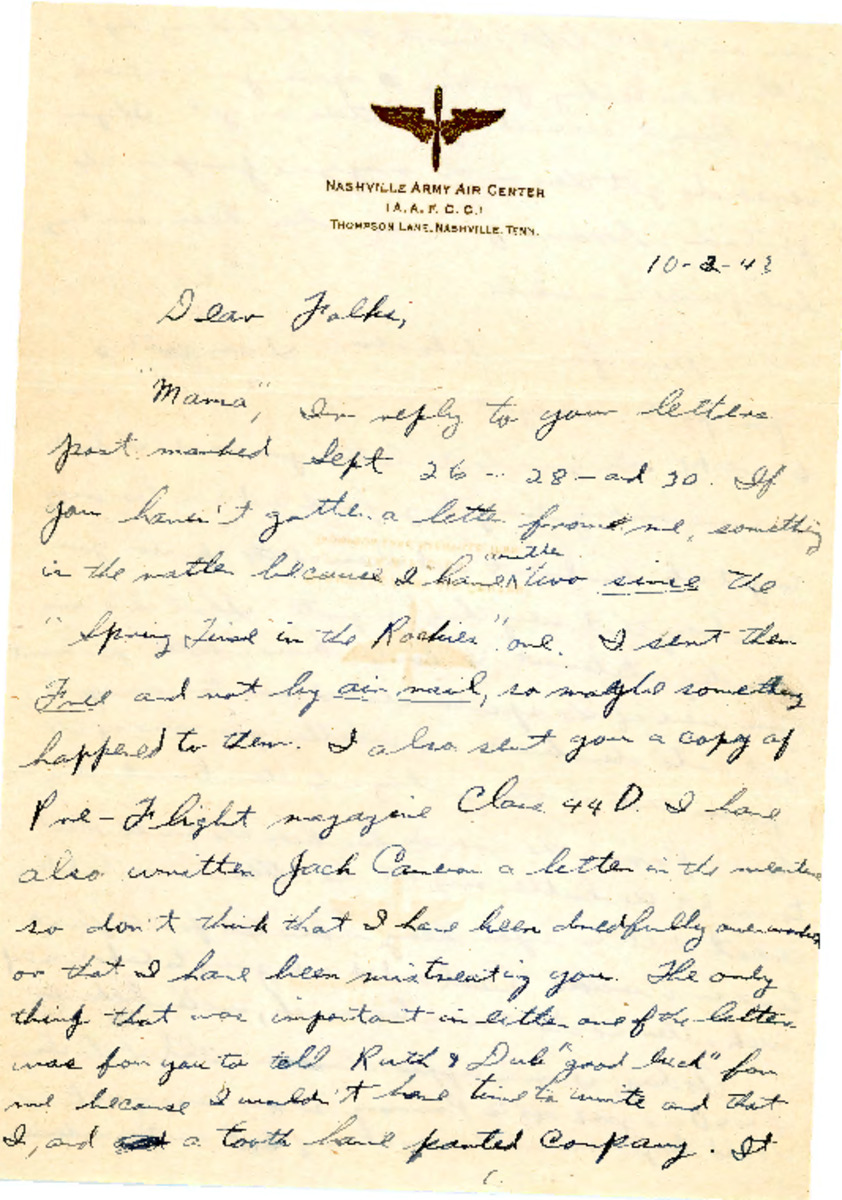 NASHVILLE ARMY AIR CENTER
(A.A.F.C.C.)
THOMPSON LANE, NASHVILLE, TENN.
10-2-43
Dear Folks,
"Mama", In reply to your letters
post marked Sept 26 - 28 - ad 30. If
you haven't gotten a letter from me, something
is the matter because I have
written
two since the
"Spring Time in the Rockies" one. I sent them
Free and not by air mail, so maybe something
happened to them. I also sent you a copy of
Pre-Flight magazine Class 44D. I have
also written Jack Cameron a letter in the
so don't think that I have been dreadfully overworked
or that I have been mistreating you. The only
thing that was important in either one of the letters
was for you to tell Ruth & Dub "good luck" for
me because I wouldn't have time to write and that
I, and a tooth have parted company. It